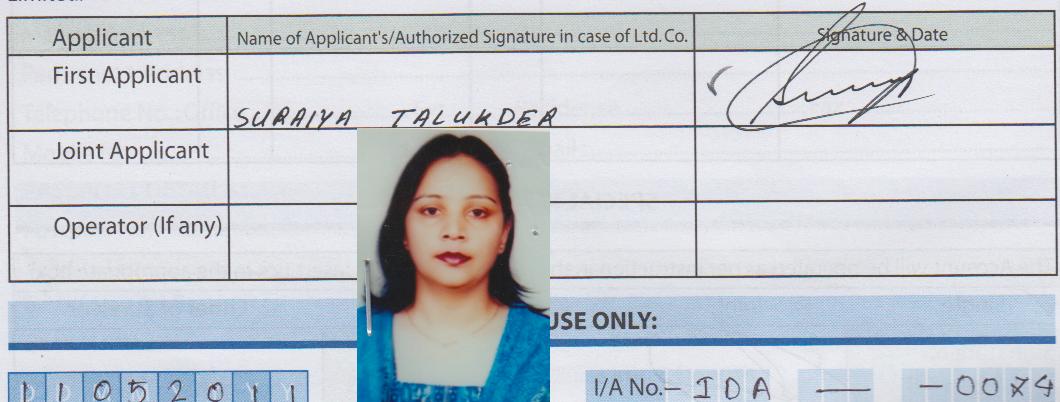 Applicant Name of Applicant's/Authorized Signature in case of Ltd. Co. Signature & Date
First Applicant
SURAIYA TALUKDER
Joint Applicant
Operator (If any)
USE ONLY:
11052011 I/A No.- IDA — -0074